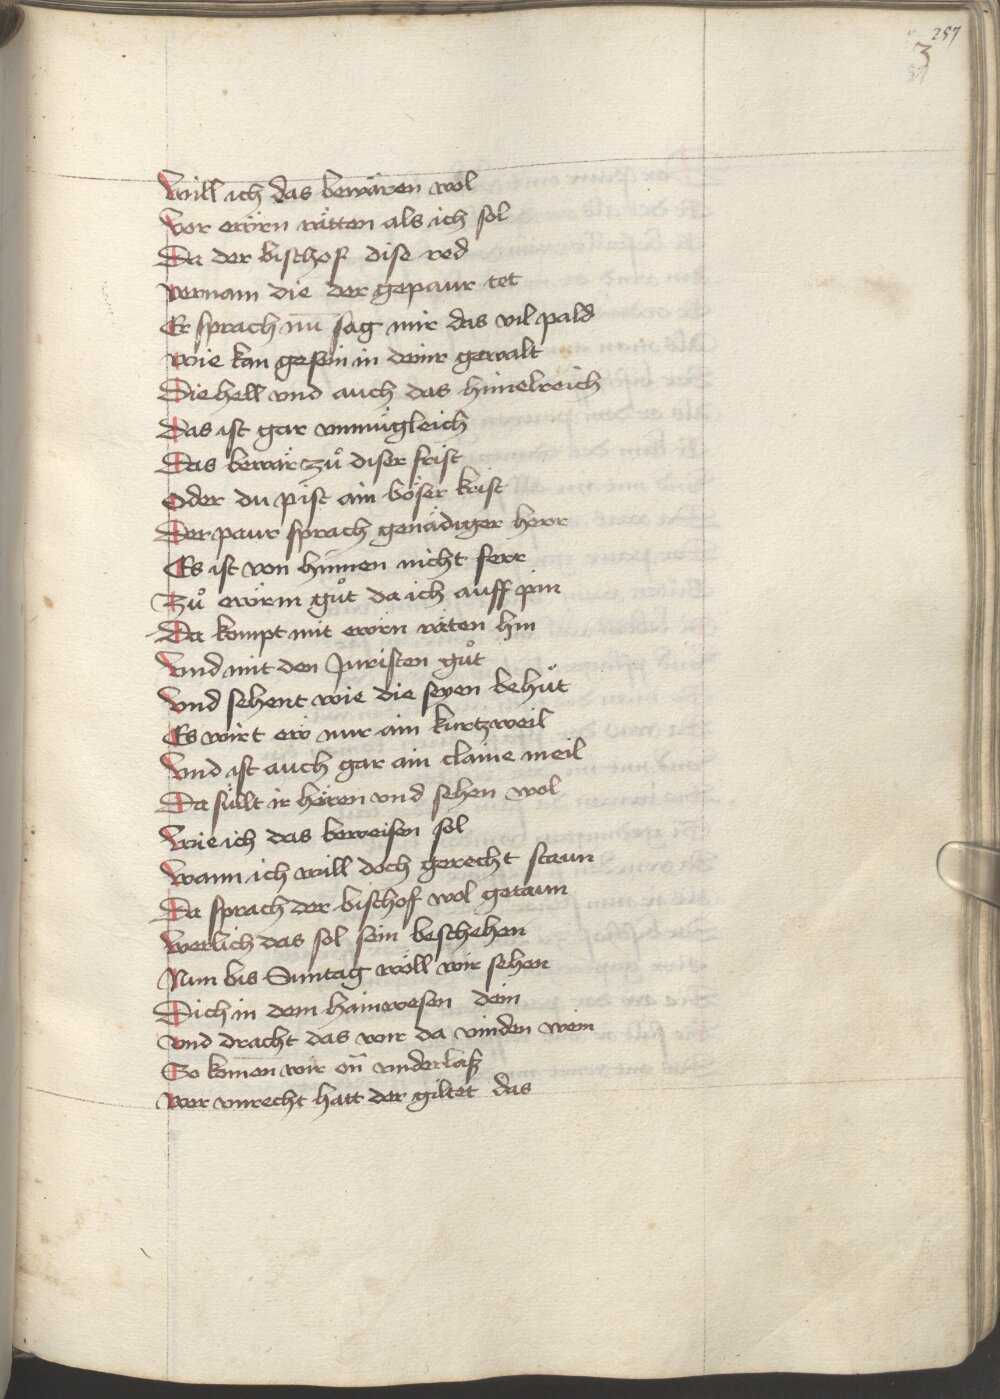 257
3
Will ich das bewären wol
Vor ewrn rätten als ich sol
Da der bischof dise red
vernam die der gepaur tet
Er sprach nū sag mir das vil pald
wie kan gesein in deinr gewalt
Die hell vnd auch das himelreich
Das ist gar vnmüglich
Das bewär zů diser frist
Oder du pist ain böser krist
Der paur sprach genädiger herr
Es ist von hinnen nicht ferr
Zů ewrm gůt da ich auff pin
Da kompt mit ewrn räten hin
Vnd mit den Juristen gůt
Vnd sehent wie die seyen behůt
Es wirt ew nur ain kurtzweil
Vnd ist auch gar ain claine meil
Da sült ir hören vnd sehen wol
Wie ich das beweisen sol
Wann ich will doch gerecht staun
Da sprach der bischof wol getaun
Werlich das sol sein beschehen
Nun bis Suntag wöll wir sehen
Dich in dem hainwesen dein
Vnd dracht das wir da vinden wein
So komen wir on̄ vnderlaß
Wer vnrecht hatt der giltet das